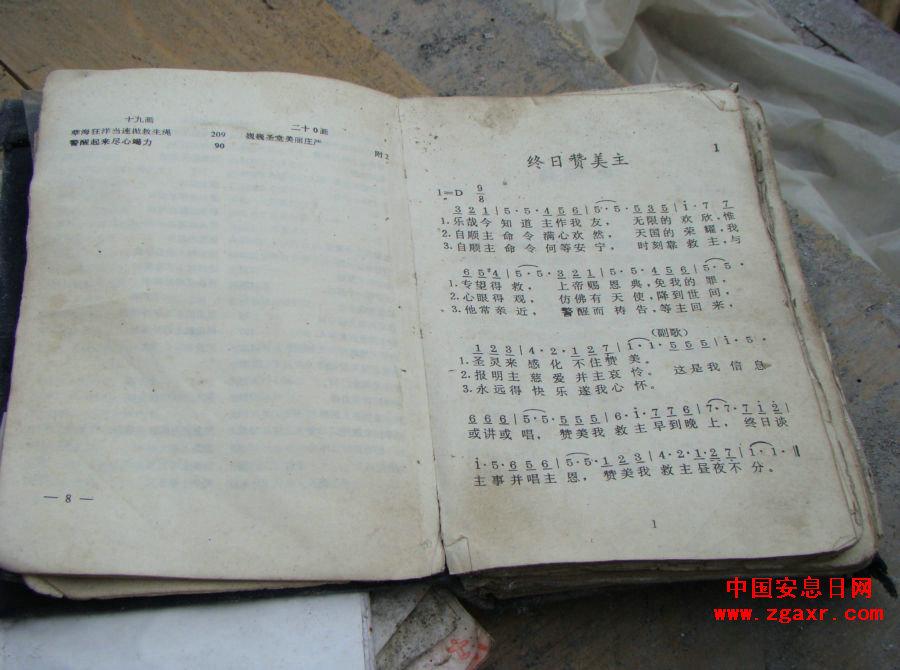 十九画
孽海狂洋当速抛救生绳 209
警醒起来尽心竭力 90
二十0画
巍巍圣堂美丽庄严 附2
— 8 —
1
终日赞美主
1=D 9/8
3 2 1 | 5 · 5 · 4 5 6 | 5 · 5 · 5 3 5 | i · 7 7
1.乐哉今知道主作我友, 无限的欢欣,惟
2.自顺主命令满心欢然, 天国的荣耀,我
3.自顺主命令何等安宁, 时刻靠救主,与
6 5 #4 | 5 · 5 · 3 2 1 | 5 · 5 · 4 5 6 | 5 · 5 ·
1.专望得救, 上帝赐恩典,免我的罪,
2.心眼得观, 仿佛有天使,降到世间,
3.他常亲近, 警醒而祷告,等主回来,
(副歌)
1 2 3 | 4 · 2 · 1 2 7 | i · i · 5 5 5 | i · 5 ·
1.圣灵来感化不住赞美。
2.报明主慈爱并主哀怜。 这是我信息
3.永远得快乐遂我心怀。
6 6 6 | 5 · 5 · 5 5 5 | 6 · i · 7 7 6 | 7 · 7 · 7 i 2 |
或讲或唱, 赞美我救主早到晚上, 终日谈
i · 5 · 6 5 6 | 5 · 5 · 1 2 3 | 4 · 2 · 1 2 7 | i · i · ‖
主事并唱主恩, 赞美我救主昼夜不分。
1
中国安息日网
www.zgaxr.com